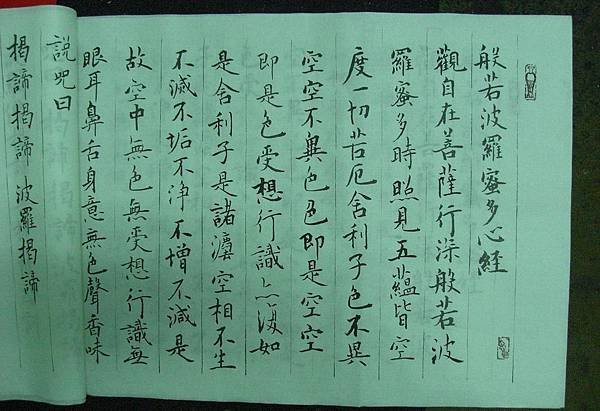 般若波羅蜜多心經
觀自在菩薩行深般若波
羅蜜多時照見五蘊皆空
度一切苦厄舍利子色不異
空空不異色色即是空空
即是色受想行識亦復如
是舍利子是諸法空相不生
不滅不垢不淨不增不減是
故空中無色無受想行識無
眼耳鼻舌身意無色聲香味
說咒曰
揭諦揭諦 波羅揭諦